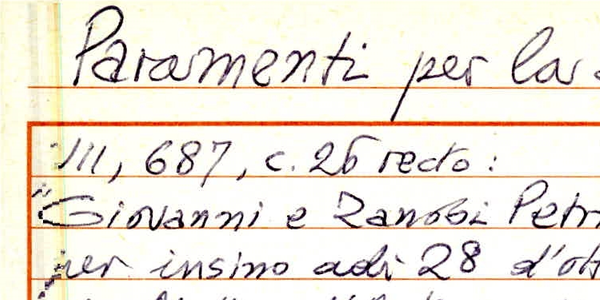 Paramenti per la
VII, 687, c. 26 recto:
"Giovanni e Zanobi Petri
per insino adì 28 d'ott